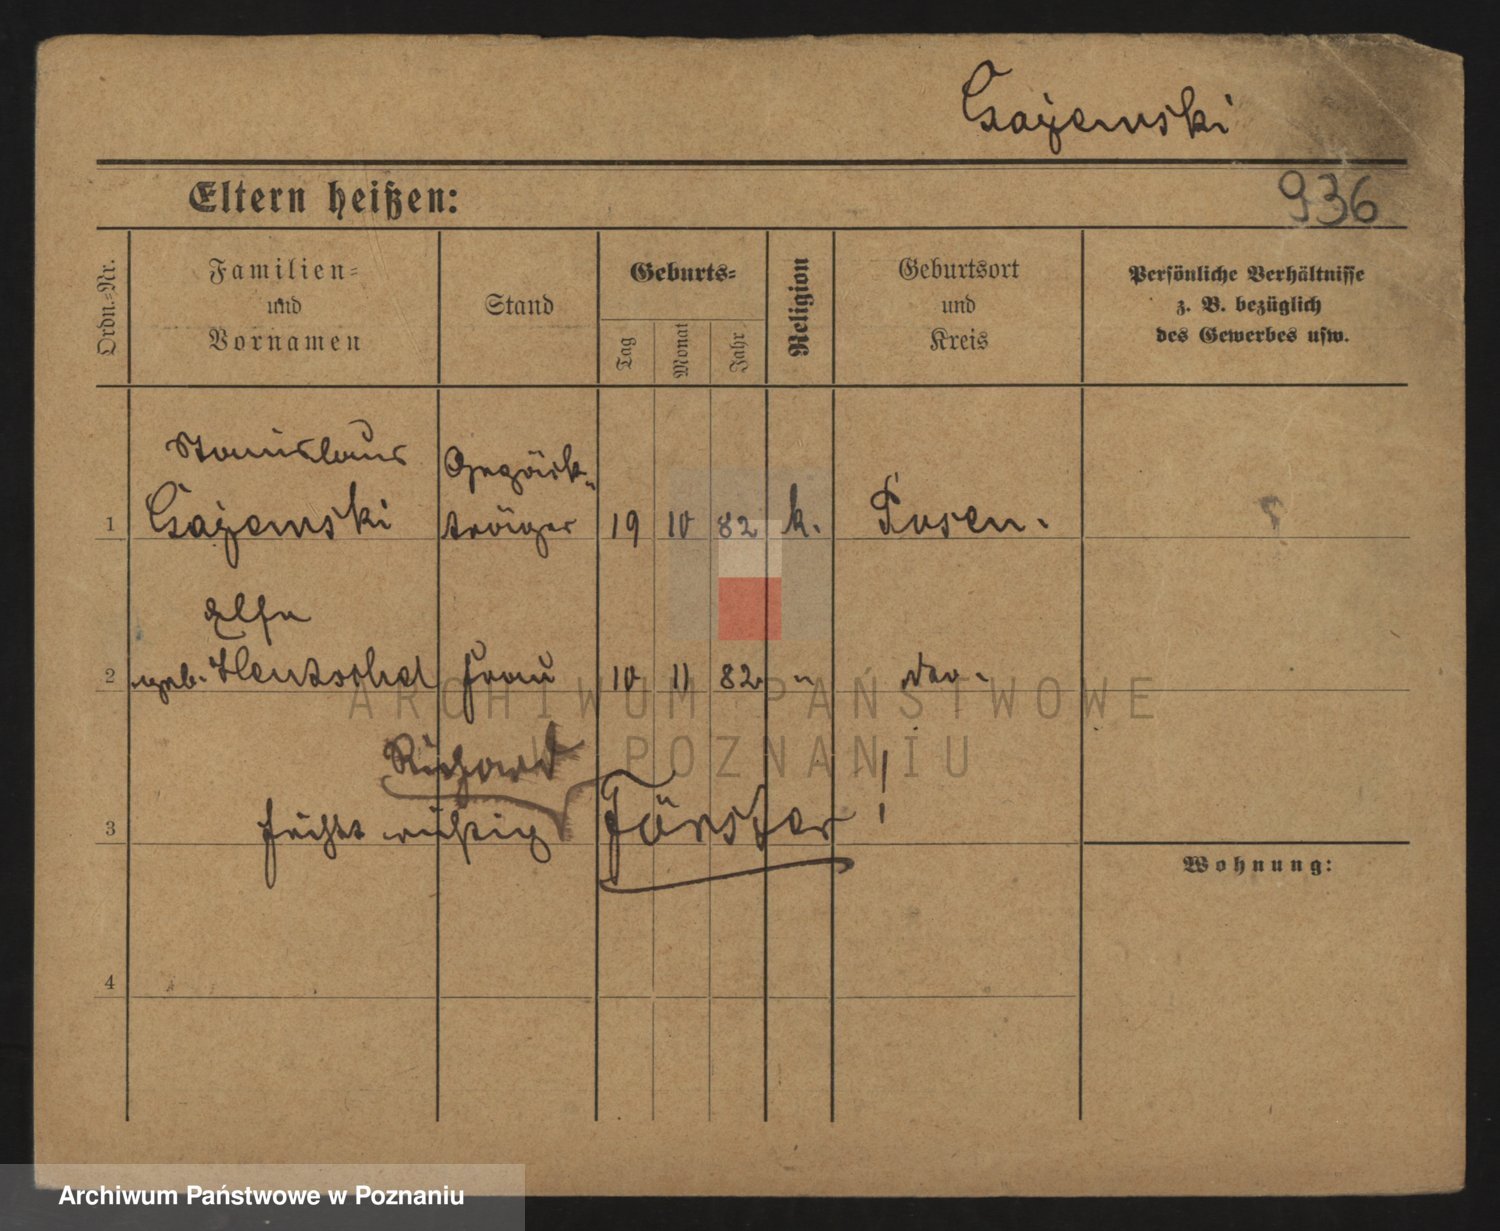 Czajewski
Eltern heißen:
936
Ordn.-Nr.
Familien-
und
Vornamen
Stand
Geburts-
Tag
Monat
Jahr
Religion
Geburtsort
und
Kreis
Persönliche Verhältnisse
z. B. bezüglich
des Gewerbes usw.
Stanislaus Gepäck-
1 Czajewski träger 19 10 82 k. Posen.
Else
2 geb. Hentschel Frau 10 11 82 " do.
ARCHIWUM PAŃSTWOWE
W POZNANIU
Richard
3 richtig Förster!
Wohnung:
4
Archiwum Państwowe w Poznaniu